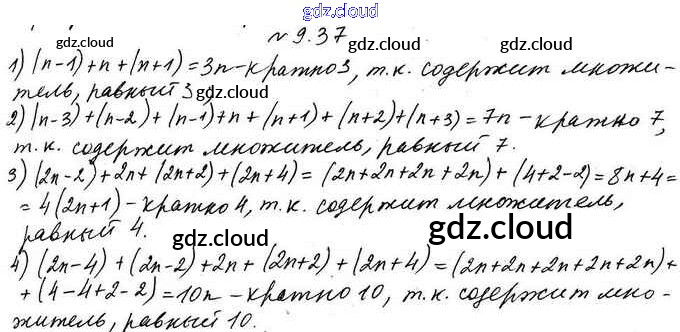 gdz.cloud
№ 9.37
gdz.cloud gdz.cloud
1) (n-1)+n+(n+1)=3n-кратно 3, т.к. содержит множи-
тель, равный 3
gdz.cloud gdz.cloud
2) (n-3)+(n-2)+(n-1)+n+(n+1)+(n+2)+(n+3)=7n-кратно 7,
т.к. содержит множитель, равный 7.
gdz.cloud gdz.cloud
3) (2n-2)+2n+(2n+2)+(2n+4)=(2n+2n+2n+2n)+(4+2-2)=8n+4=
=4(2n+1)-кратно 4, т.к. содержит множитель,
равный 4.
gdz.cloud gdz.cloud
4) (2n-4)+(2n-2)+2n+(2n+2)+(2n+4)=(2n+2n+2n+2n+2n)+
+(4-4+2-2)=10n-кратно 10, т.к. содержит мно-
житель, равный 10.
gdz.cloud gdz.cloud